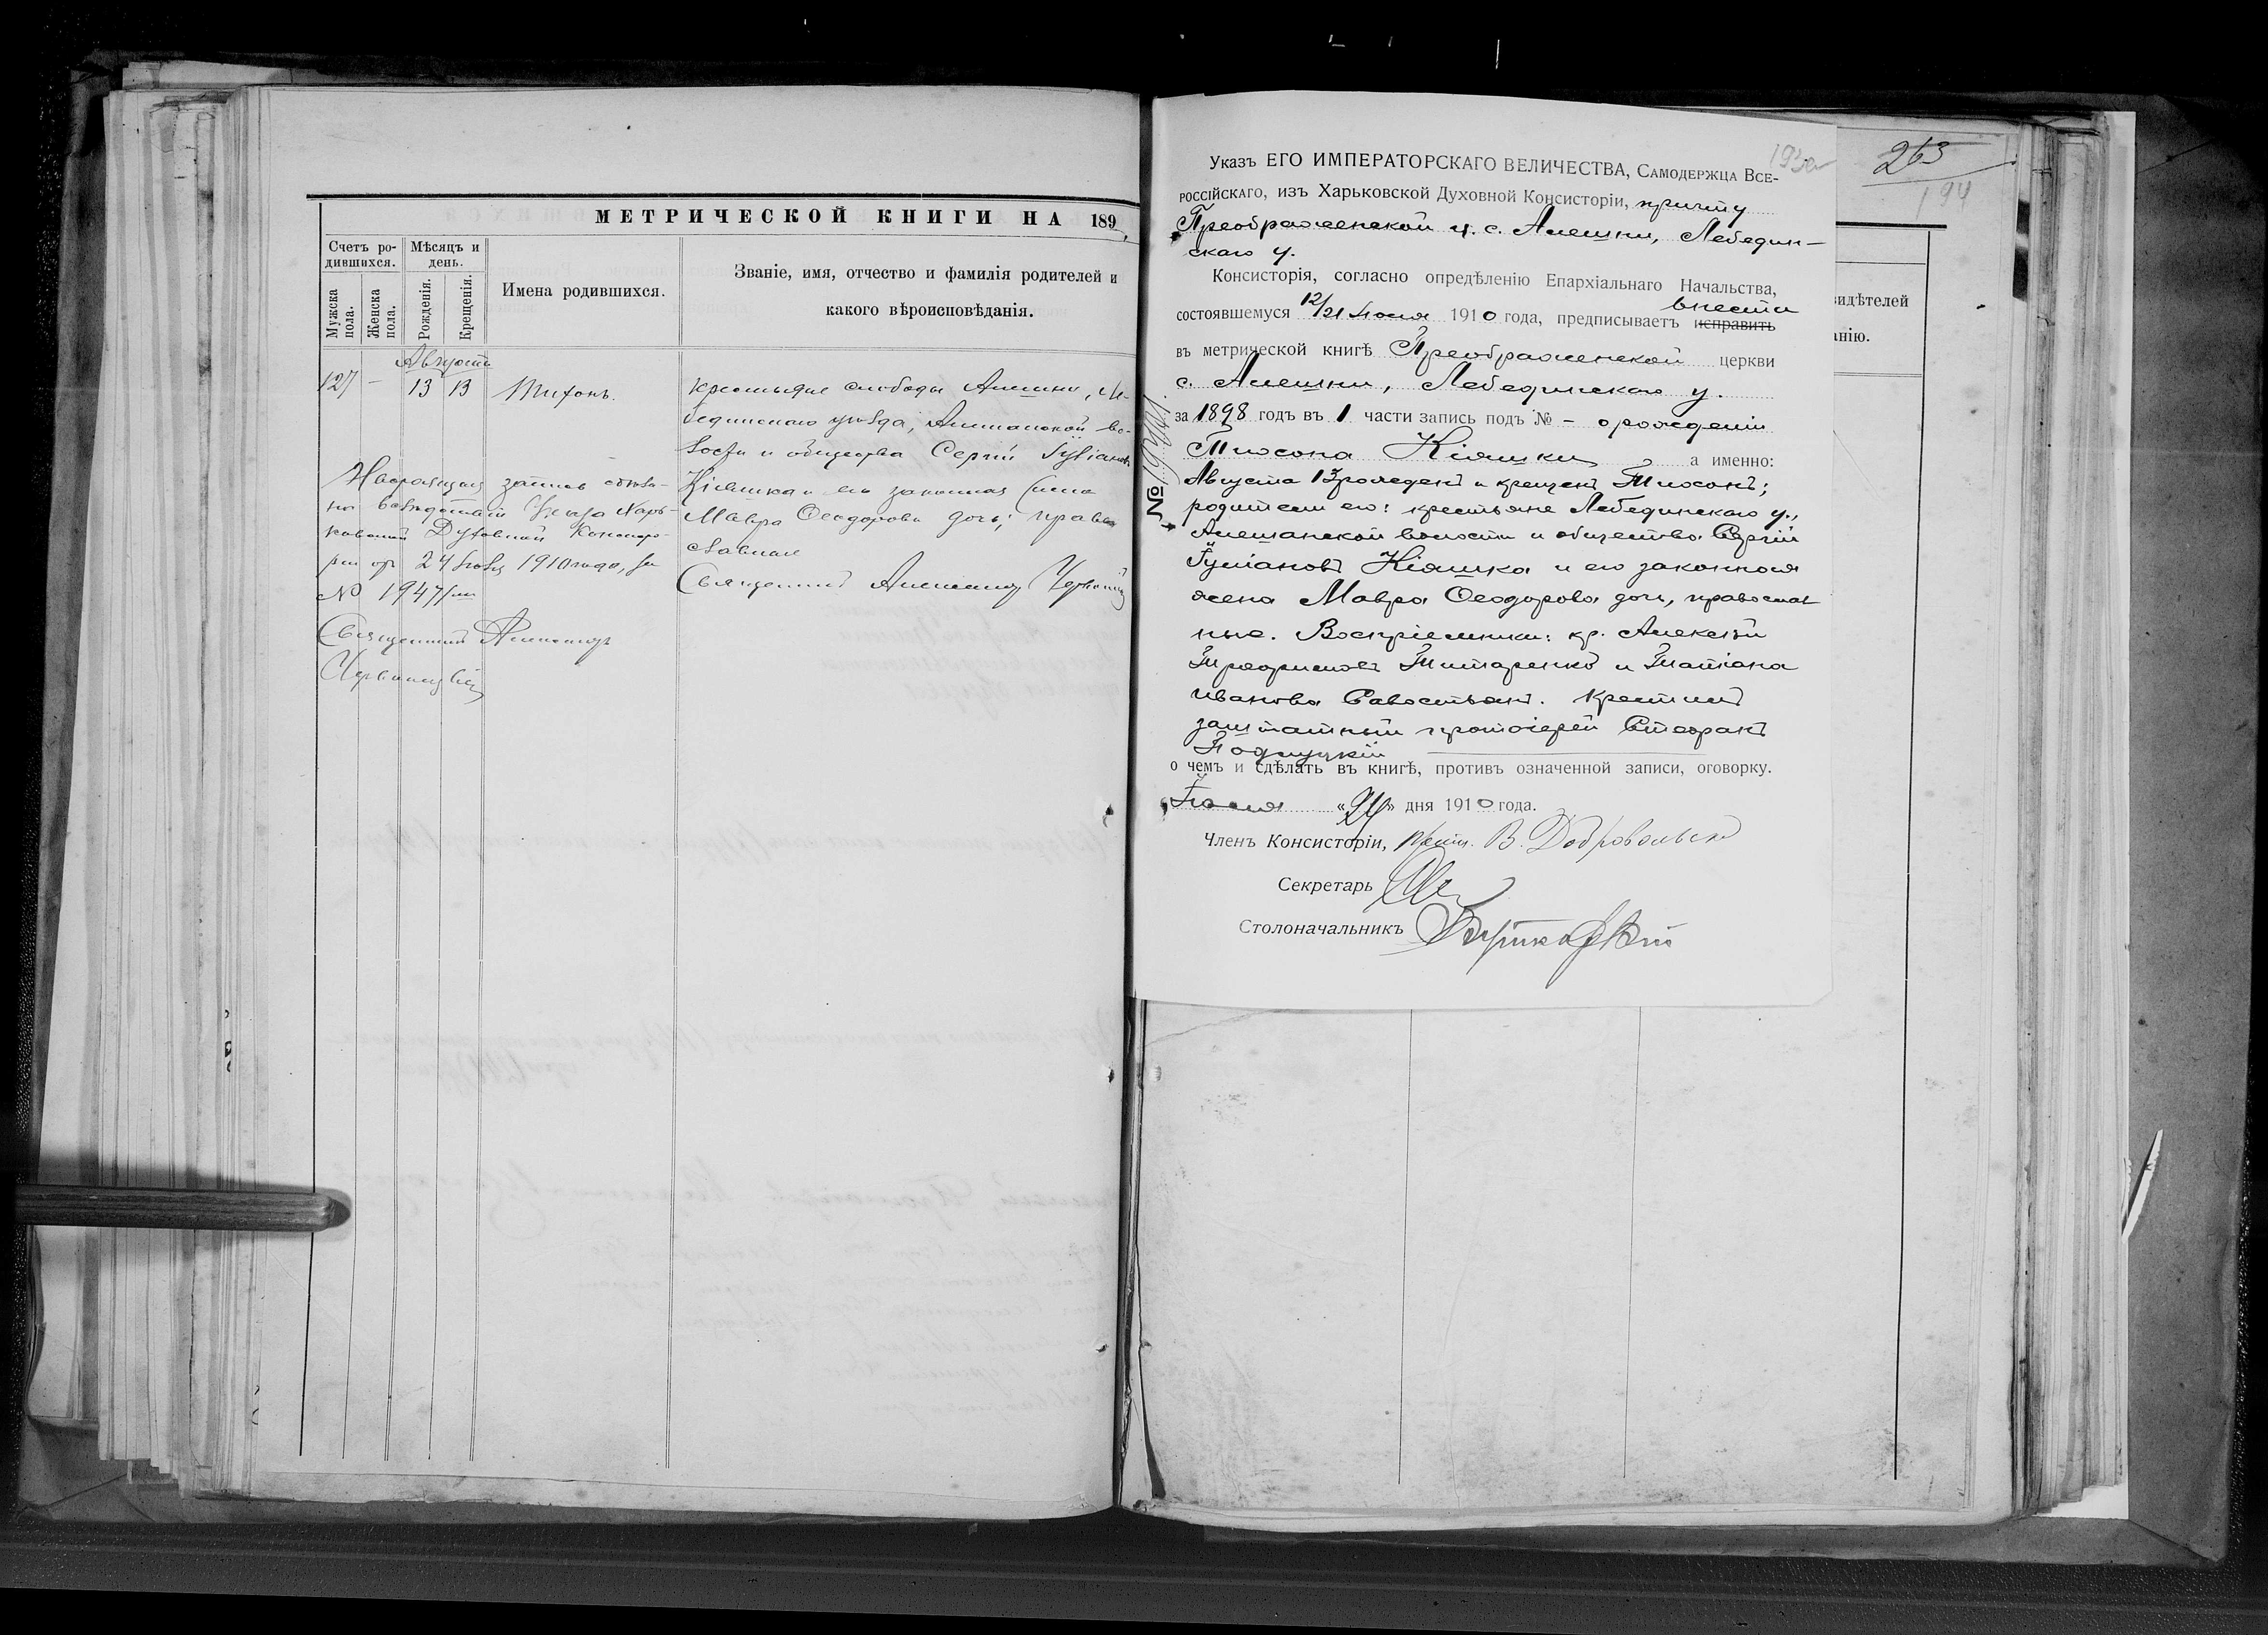 МЕТРИЧЕСКОЙ КНИГИ НА 189
Счетъ ро-
дившихся.
Мѣсяцъ и
день.
Мужска
пола.
Женска
пола.
Рожденія.
Крещенія.
Имена родившихся.
Званіе, имя, отчество и фамилія родителей и
какого вѣроисповѣданія.
Августъ
127 – 13 13 Тихонъ.
крестьяне слободы Алешни, Ле-
бединскаго уѣзда, Алешанской во-
лости и общества Сергій Іуліановъ
Кіяшка и его законная жена
Мавра Ѳеодорова дочь; право
славные
Священникъ Александръ
Настоящая запись
Указа Харь-
ковской Духовной Консисто-
ріи отъ 24 1910 года, за
№ 1947
Священникъ Александръ
193
263
194
Указъ ЕГО ИМПЕРАТОРСКАГО ВЕЛИЧЕСТВА, Самодержца Все-
россійскаго, изъ Харьковской Духовной Консисторіи, причту
Преображенской ц. с. Алешни, Лебедин-
скаго у.
Консисторія, согласно опредѣленію Епархіальнаго Начальства,
внести
состоявшемуся 12/21 Іюля 1910 года, предписываетъ исправить
въ метрической книгѣ Преображенской церкви
с. Алешни, Лебединскаго у.
за 1898 годъ въ 1 части запись подъ № – о рожденіи
Тихона Кіяшки а именно:
Августа 13 рожденъ и крещенъ Тихонъ;
родители его: крестьяне Лебединскаго у.,
Алешанской волости и общества Сергій
Іуліановъ Кіяшка и его законная
жена Мавра Ѳеодорова дочь, православ
ные. Воспріемники: кр. Алексѣй
Трофимовъ Титаренко и Татіана
Иванова Савостьян. Крестилъ
заштатный протоіерей Стефанъ
о чемъ и сдѣлать въ книгѣ, противъ означенной записи, оговорку.
Іюля «24» дня 1910 года.
Членъ Консисторіи, В. Добровольск
Секретарь
Столоначальникъ
№
видѣтелей
анію.